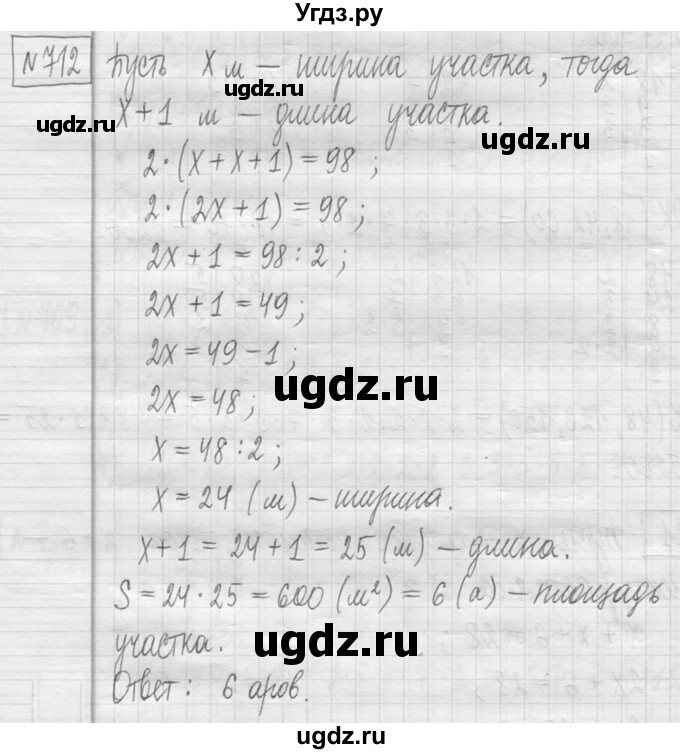 Угдз.ру
№712 Пусть x м – ширина участка, тогда
ugdz.ru
x+1 м – длина участка.
ugdz.ru
ugdz.ru
2·(x+x+1)=98;
2·(2x+1)=98;
2x+1=98:2;
ugdz.ru
2x+1=49;
2x=49-1;
ugdz.ru
2x=48;
x=48:2;
ugdz.ru
x=24 (м) – ширина.
x+1=24+1=25 (м) – длина.
ugdz.ru
S=24·25=600 (м²)=6 (а) – площадь
участка.
ugdz.ru
Ответ: 6 аров.
ugdz.ru